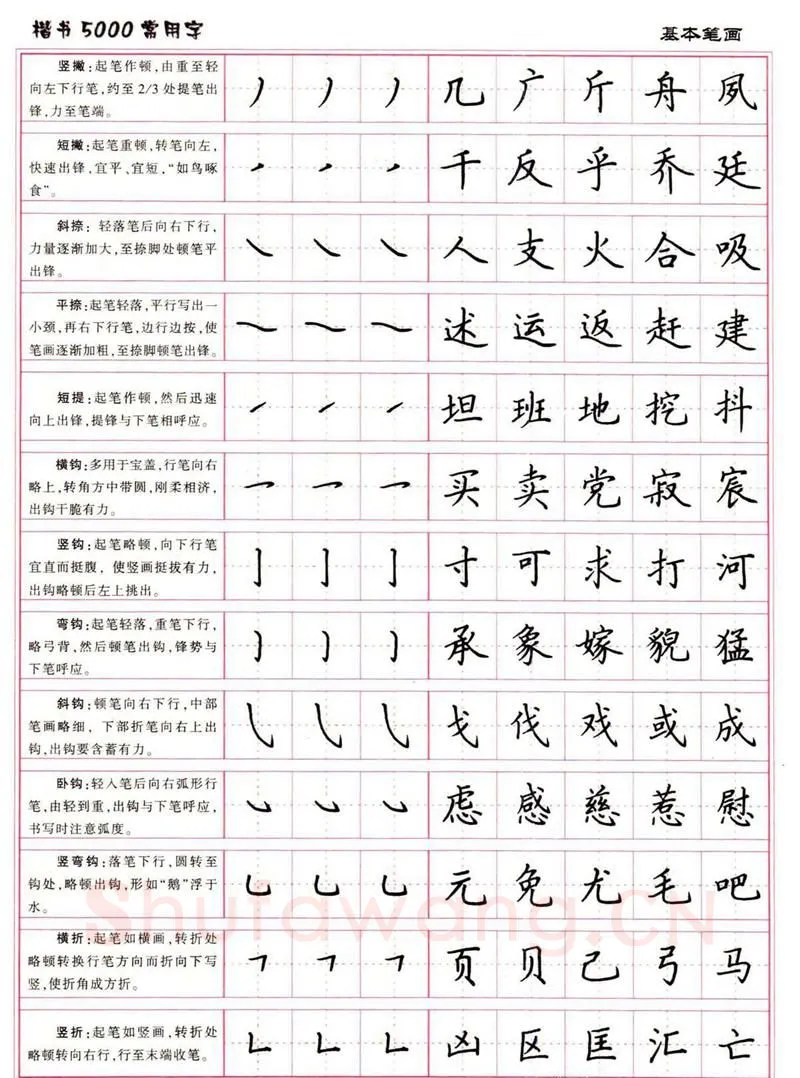 楷书5000常用字
基本笔画
竖撇:起笔作顿,由重至轻
向左下行笔,约至2/3处提笔出
锋,力至笔端。
几广斤舟夙
短撇:起笔重顿,转笔向左,
快速出锋,宜平、宜短,“如鸟啄
食”。
千反乎乔廷
斜捺:轻落笔后向右下行,
力量逐渐加大,至捺脚处顿笔平
出锋。
人支火合吸
平捺:起笔轻落,平行写出一
小颈,再右下行笔,边行边按,使
笔画逐渐加粗,至捺脚顿笔出锋。
述运返赶建
短提:起笔作顿,然后迅速
向上出锋,提锋与下笔相呼应。
坦班地挖抖
横钩:多用于宝盖,行笔向右
略上,转角方中带圆,刚柔相济,
出钩干脆有力。
买卖党寂宸
竖钩:起笔略顿,向下行笔
宜直而挺腹,使竖画挺拔有力,
出钩略顿后左上挑出。
寸可求打河
弯钩:起笔轻落,重笔下行,
略弓背,然后顿笔出钩,锋势与
下笔呼应。
承象嫁貌猛
斜钩:顿笔向右下行,中部
笔画略细,下部折笔向右上出
钩,出钩要含蓄有力。
戈伐戏或成
卧钩:轻入笔后向右弧形行
笔,由轻到重,出钩与下笔呼应,
书写时注意弧度。
虑感慈惹慰
竖弯钩:落笔下行,圆转至
钩处,略顿出钩,形如“鹅”浮于
水。
元免尤毛吧
Shufawang.CN
横折:起笔如横画,转折处
略顿转换行笔方向而折向下写
竖,使折角成方折。
页贝己弓马
竖折:起笔如竖画,转折处
略顿转向右行,行至末端收笔。
凶区匡汇亡